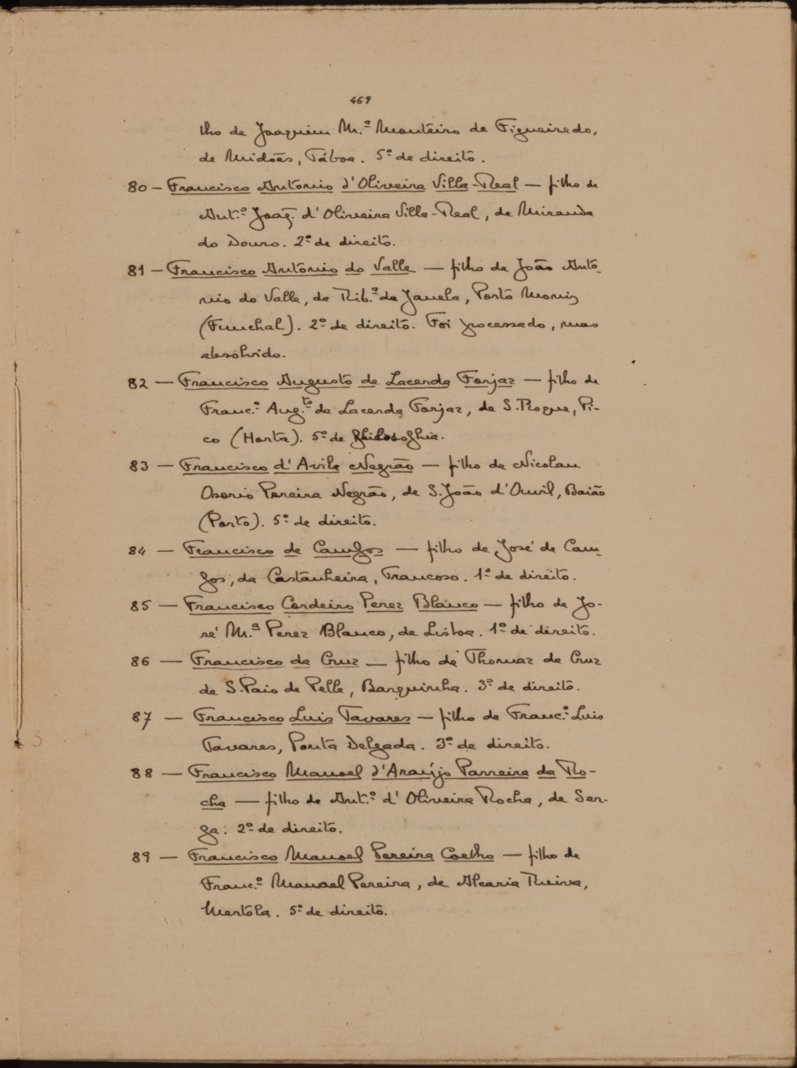 469
lho de Joaquim M.ª Monteiro de Figueiredo,
de Midões, Táboa. 5º de direito.
80 — Francisco Antonio d'Oliveira Villa-Real — filho de
Ant.º Joaq. d'Oliveira Villa-Real, de Miranda
do Douro. 2º de direito.
81 — Francisco Antonio do Valle — filho de João Anto-
nio do Valle, da Rib.ª da Janela, Porto Moniz
(Funchal). 2º de direito. Foi processado, mas
absolvido.
82 — Francisco Augusto de Lacerda Forjaz — filho de
Franc.º Aug.to de Lacerda Forjaz, de S. Roque, Pi-
co (Horta). 5º de philosophia.
83 — Francisco d'Avila Negrão — filho de Nicolau
Osorio Pereira Negrão, de S. João d'Ouvil, Baião
(Porto). 5º de direito.
84 — Francisco de Campos — filho de José de Cam-
pos, da Castanheira, Trancoso. 1º de direito.
85 — Francisco Cordeiro Perez Blanco — filho de Jo-
sé M.ª Perez Blanco, de Lisboa. 1º de direito.
86 — Francisco da Cruz — filho de Thomaz da Cruz
de S. Paio de Pelle, Barquinha. 3º de direito.
87 — Francisco Luis Tavares — filho de Franc.º Luis
Tavares, Ponta Delgada. 3º de direito.
88 — Francisco Manoel d'Araujo Parreira da Ro-
cha — filho de Ant.º d'Oliveira Rocha, de Ser-
pa. 2º de direito.
89 — Francisco Manoel Pereira Coelho — filho de
Franc.º Manoel Pereira, de Alcaria Ruiva,
Mertola. 5º de direito.